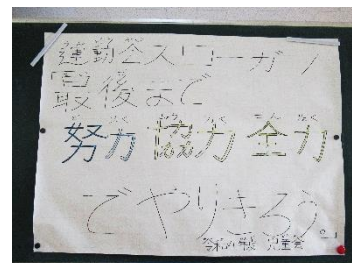 運動会スローガン
最後まで
努力 協力 全力
でやりきろう。
児童会